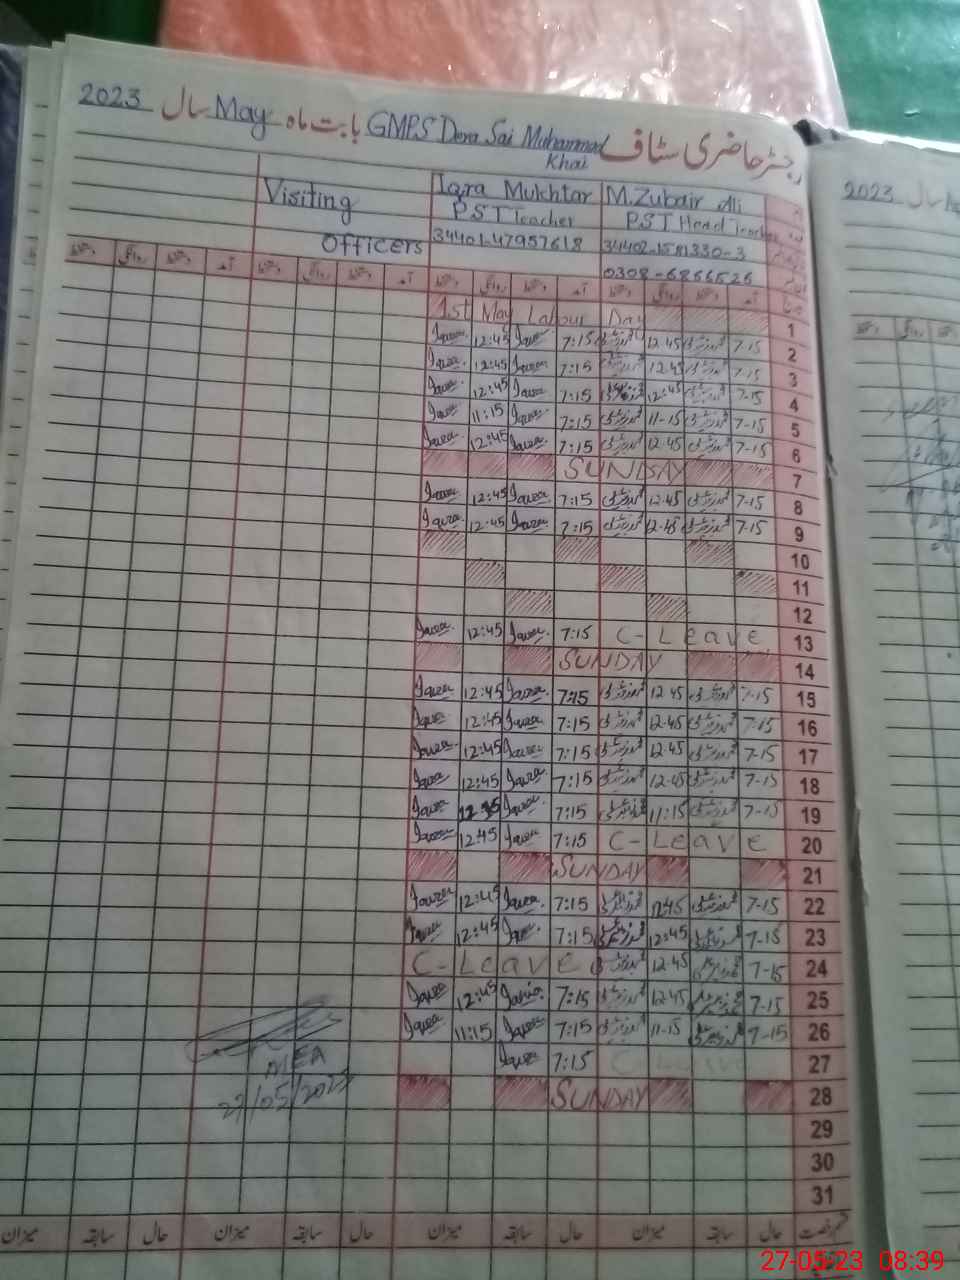 رجسٹر حاضری سٹاف GMPS Dera Sai Muhammad Khai بابت ماہ May سال 2023
M. Zubair Ali Iqra Mukhtar Visiting
PST Head Teacher PST Teacher
34402-1581330-3 34401-47957618 Officers
0308-6866526
آمد دستخط روانگی دستخط آمد دستخط روانگی دستخط آمد دستخط روانگی دستخط آمد دستخط روانگی دستخط
1 1st May Labour Day
2 7-15 محمد زبیر علی 12.45 محمد زبیر علی 7:15 Iqra 12:45 Iqra
3 7-15 محمد زبیر علی 12.45 محمد زبیر علی 7:15 Iqra 12:45 Iqra
4 7-15 محمد زبیر علی 12:45 محمد زبیر علی 7:15 Iqra 12:45 Iqra
5 7-15 محمد زبیر علی 11-15 محمد زبیر علی 7:15 Iqra 11:15 Iqra
6 7-15 محمد زبیر علی 12.45 محمد زبیر علی 7:15 Iqra 12:45 Iqra
7 SUNDAY
8 7-15 محمد زبیر علی 12.45 محمد زبیر علی 7:15 Iqra 12:45 Iqra
9 7-15 محمد زبیر علی 12-45 محمد زبیر علی 7:15 Iqra 12:45 Iqra
10
11
12
13 C-Leave 7:15 Iqra 12:45 Iqra
14 SUNDAY
15 7-15 محمد زبیر علی 12.45 محمد زبیر علی 7:15 Iqra 12:45 Iqra
16 7-15 محمد زبیر علی 12-45 محمد زبیر علی 7:15 Iqra 12:45 Iqra
17 7-15 محمد زبیر علی 12.45 محمد زبیر علی 7:15 Iqra 12:45 Iqra
18 7-15 محمد زبیر علی 12-45 محمد زبیر علی 7:15 Iqra 12:45 Iqra
19 7-15 محمد زبیر علی 11:15 محمد زبیر علی 7:15 Iqra Iqra
20 C-Leave 7:15 Iqra 12:45 Iqra
21 SUNDAY
22 7-15 محمد زبیر علی 12:45 محمد زبیر علی 7:15 Iqra 12:45 Iqra
23 7-15 محمد زبیر علی 12:45 محمد زبیر علی 7:15 Iqra 12:45 Iqra
24 7-15 محمد زبیر علی 12.45 محمد زبیر علی C-Leave
25 7-15 محمد زبیر علی 12.45 محمد زبیر علی 7:15 Iqra 12:45 Iqra
26 7-15 محمد زبیر علی 11-15 محمد زبیر علی 7:15 Iqra 11:15 Iqra
27 C-Leave 7:15 Iqra
MEA
28 SUNDAY
27/05/2023
29
30
31
حال سابقہ میزان حال سابقہ میزان حال سابقہ میزان حال سابقہ میزان
سال 2023
27-05-23 08:39